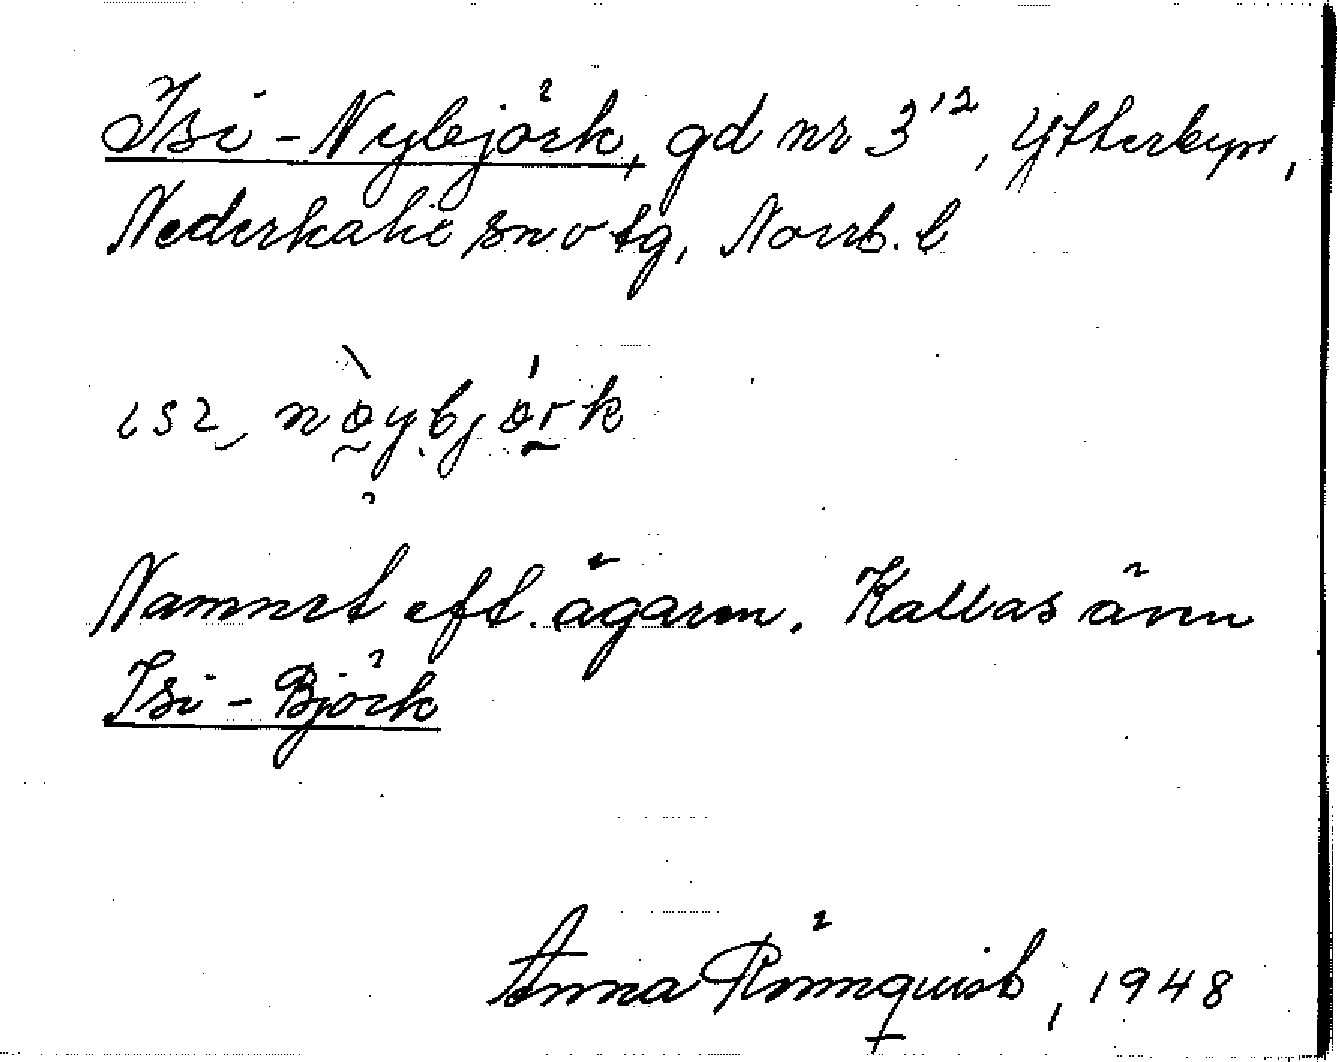 Isi-Nybjörk, gd nr 3¹², Ytterbyn,
Nederkalix sn o tg, Norrb. l
Namnet eft. ägaren. Kallas även
Isi-Björk
Anna Rönnquist, 1948